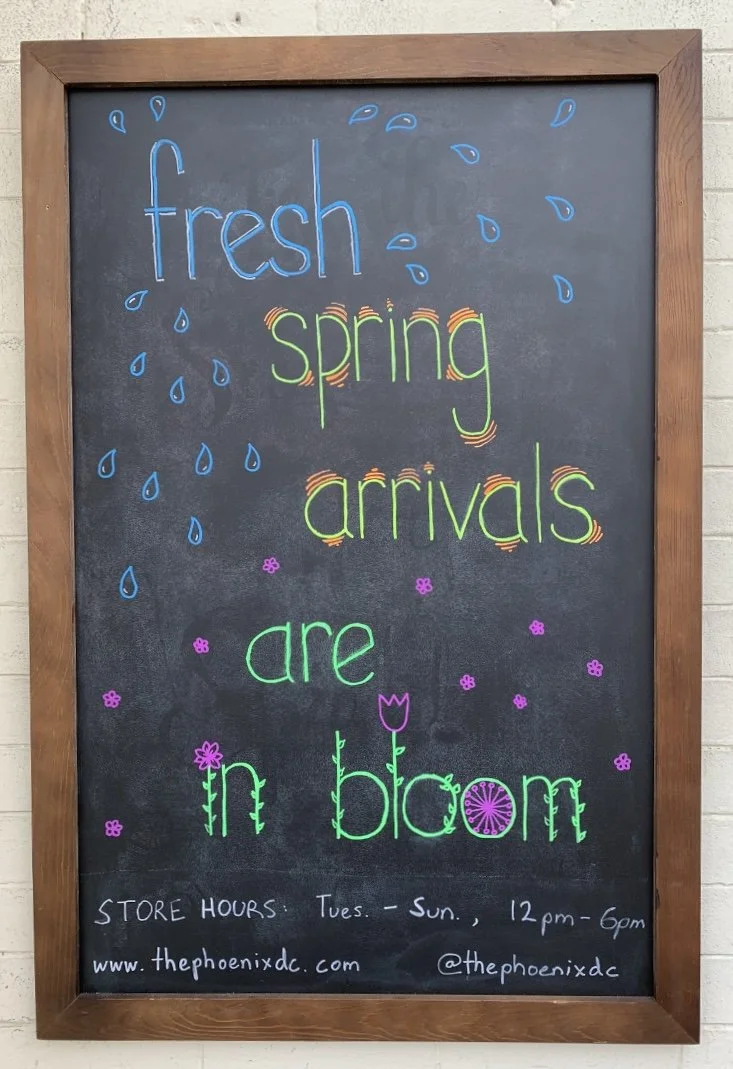 fresh
spring
arrivals
are
in bloom
STORE HOURS: Tues. - Sun., 12pm - 6pm
www.thephoenixdc.com @thephoenixdc